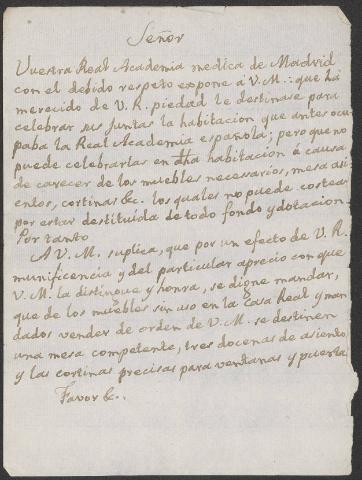 Señor
Vuestra Real Academia medica de Madrid
con el debido respeto expone a V.M.: que há
merecido de V.R. piedad le destinase para
celebrar sus Juntas la habitacion que antes ocu
paba la Real Academia española; pero que no
puede celebrarlas en dha habitacion á causa
de carecer de los muebles necesarios, mesa asi
entos, cortinas &c. los quales no puede costear
por estar destituída de todo fondo y dotacion
Por tanto
A V.M. suplica, que por un efecto de V.R.
munificencia y del particular aprecio con que
V.M. la distingue y honra, se digne mandar,
que de los muebles sin uso en la Casa Real y man
dados vender de orden de V.M. se destinen
una mesa competente, tres docenas de asiento
y las cortinas precisas para ventanas y puerta
Favor &c.